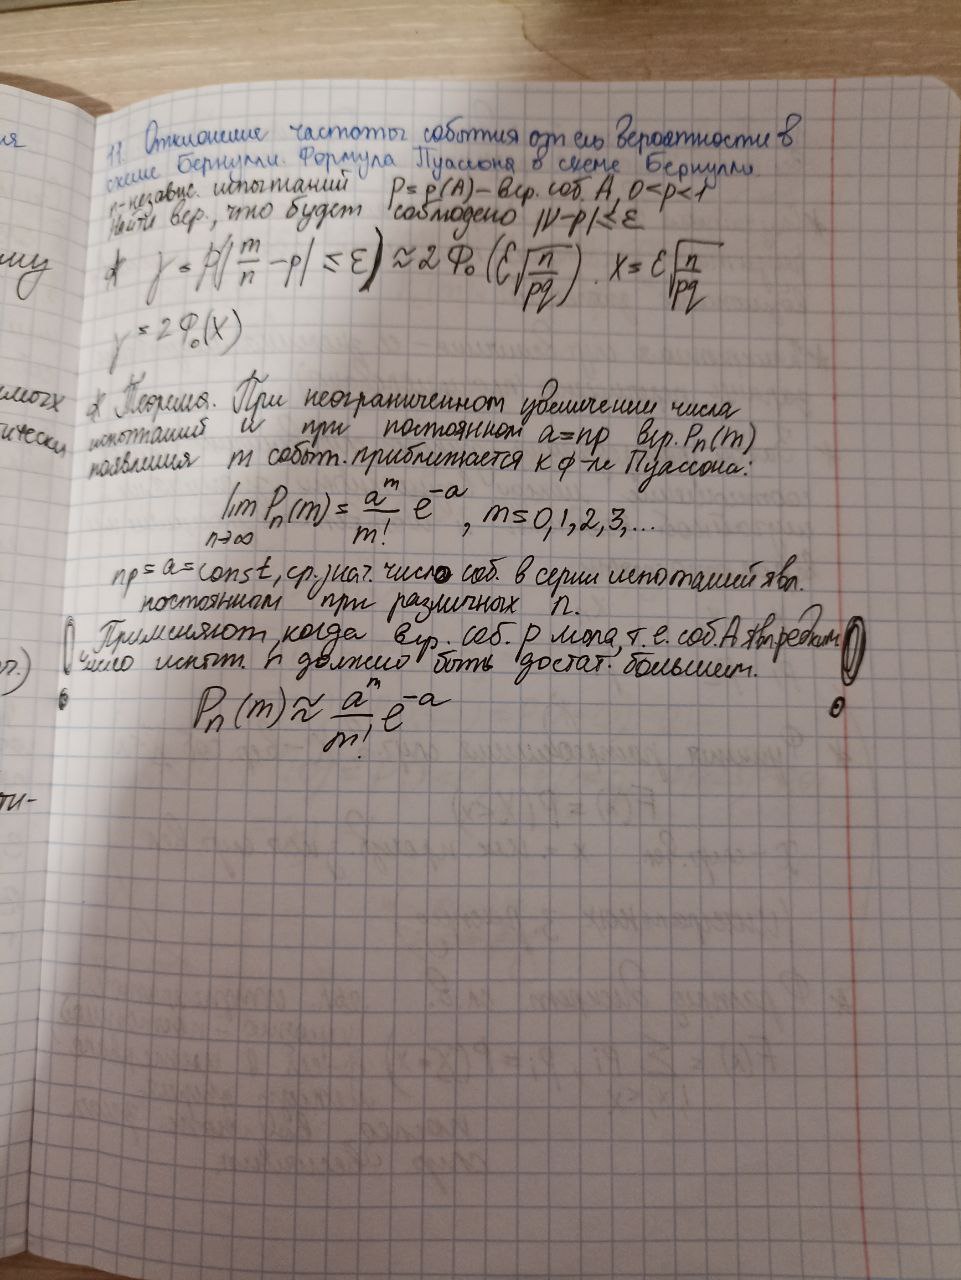 11. Отклонение частоты события от его вероятности в
схеме Бернулли. Формула Пуассона в схеме Бернулли.
n-независ. испытаний P=p(A)-вер. соб. A, 0<p<1
Найти вер., что будет соблюдено |ν-p|≤ε
* γ = P(|m/n - p| ≤ ε) ≈ 2Φ₀(ε√(n/pq)). x = ε√(n/pq)
γ = 2Φ₀(x)
* Теорема. При неограниченном увеличении числа
испытаний и при постоянном a=np вер. Pn(m)
появления m событ. приближается к ф-ле Пуассона:
lim n→∞ Pn(m) = a^m/m! e^-a, m=0,1,2,3,...
np=a=const, ср. знач. число соб. в серии испытаний явл.
постоянном при различных n.
Применяют, когда вер. соб. p мала, т.е. соб A явл редким
число испыт. n должно быть достат. большим.
Pn(m) ≈ a^m/m! e^-a